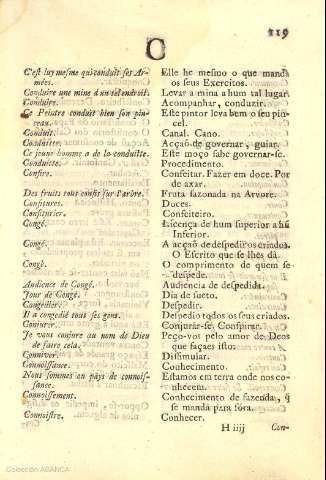 219
O
C'est luy mesme qui conduit ses Ar-
mées.
Conduire une mine d'un tel endroit.
Conduire.
Ce Peintre conduit bien son pin-
ceau.
Conduit.
Conduitte.
Ce jeune homme a de la conduitte.
Conduite.
Confire.
Des fruits tous confis sur l'arbre.
Confitures.
Confiturier.
Congé.
Congé.
Congé.
Audience de Congé.
Jour de Congé.
Congedier.
Il a congedié tous ses gens.
Conjurer.
Je vous conjure au nom de Dieu
de faire cela.
Conniver.
Connoissance.
Nous sommes en pays de connois-
sance.
Connoissement.
Connoistre.
Elle he mesmo o que manda
os seus Exercitos.
Levar a mina a hum tal lugar.
Acompanhar, conduzir.
Este pintor leva bem o seu pin-
cel.
Canal. Cano.
Acçaõ de governar, guiar.
Este moço sabe governar-se.
Procedimento.
Confeitar. Fazer em doce. Por
de
Fruta sazonada na Arvore.
Doces.
Confeiteiro.
Licença de hum superior a hũ
Inferior.
A acçaõ de despedir os criados.
O Escrito que se lhes dá.
O comprimento de quem se
despede.
Audiencia de despedida.
Dia de sueto.
Despedir.
Despedio todos os seus criados.
Conjurar-se, Conspirar.
Peço-vos pelo amor de Deos
que façaes isto.
Dissimular.
Conhecimento.
Estamos em terra onde nos co-
nhecem.
Conhecimento de fazenda, q̃
se manda para fóra.
Conhecer.
H iiij
Con-
Colección ABANCA